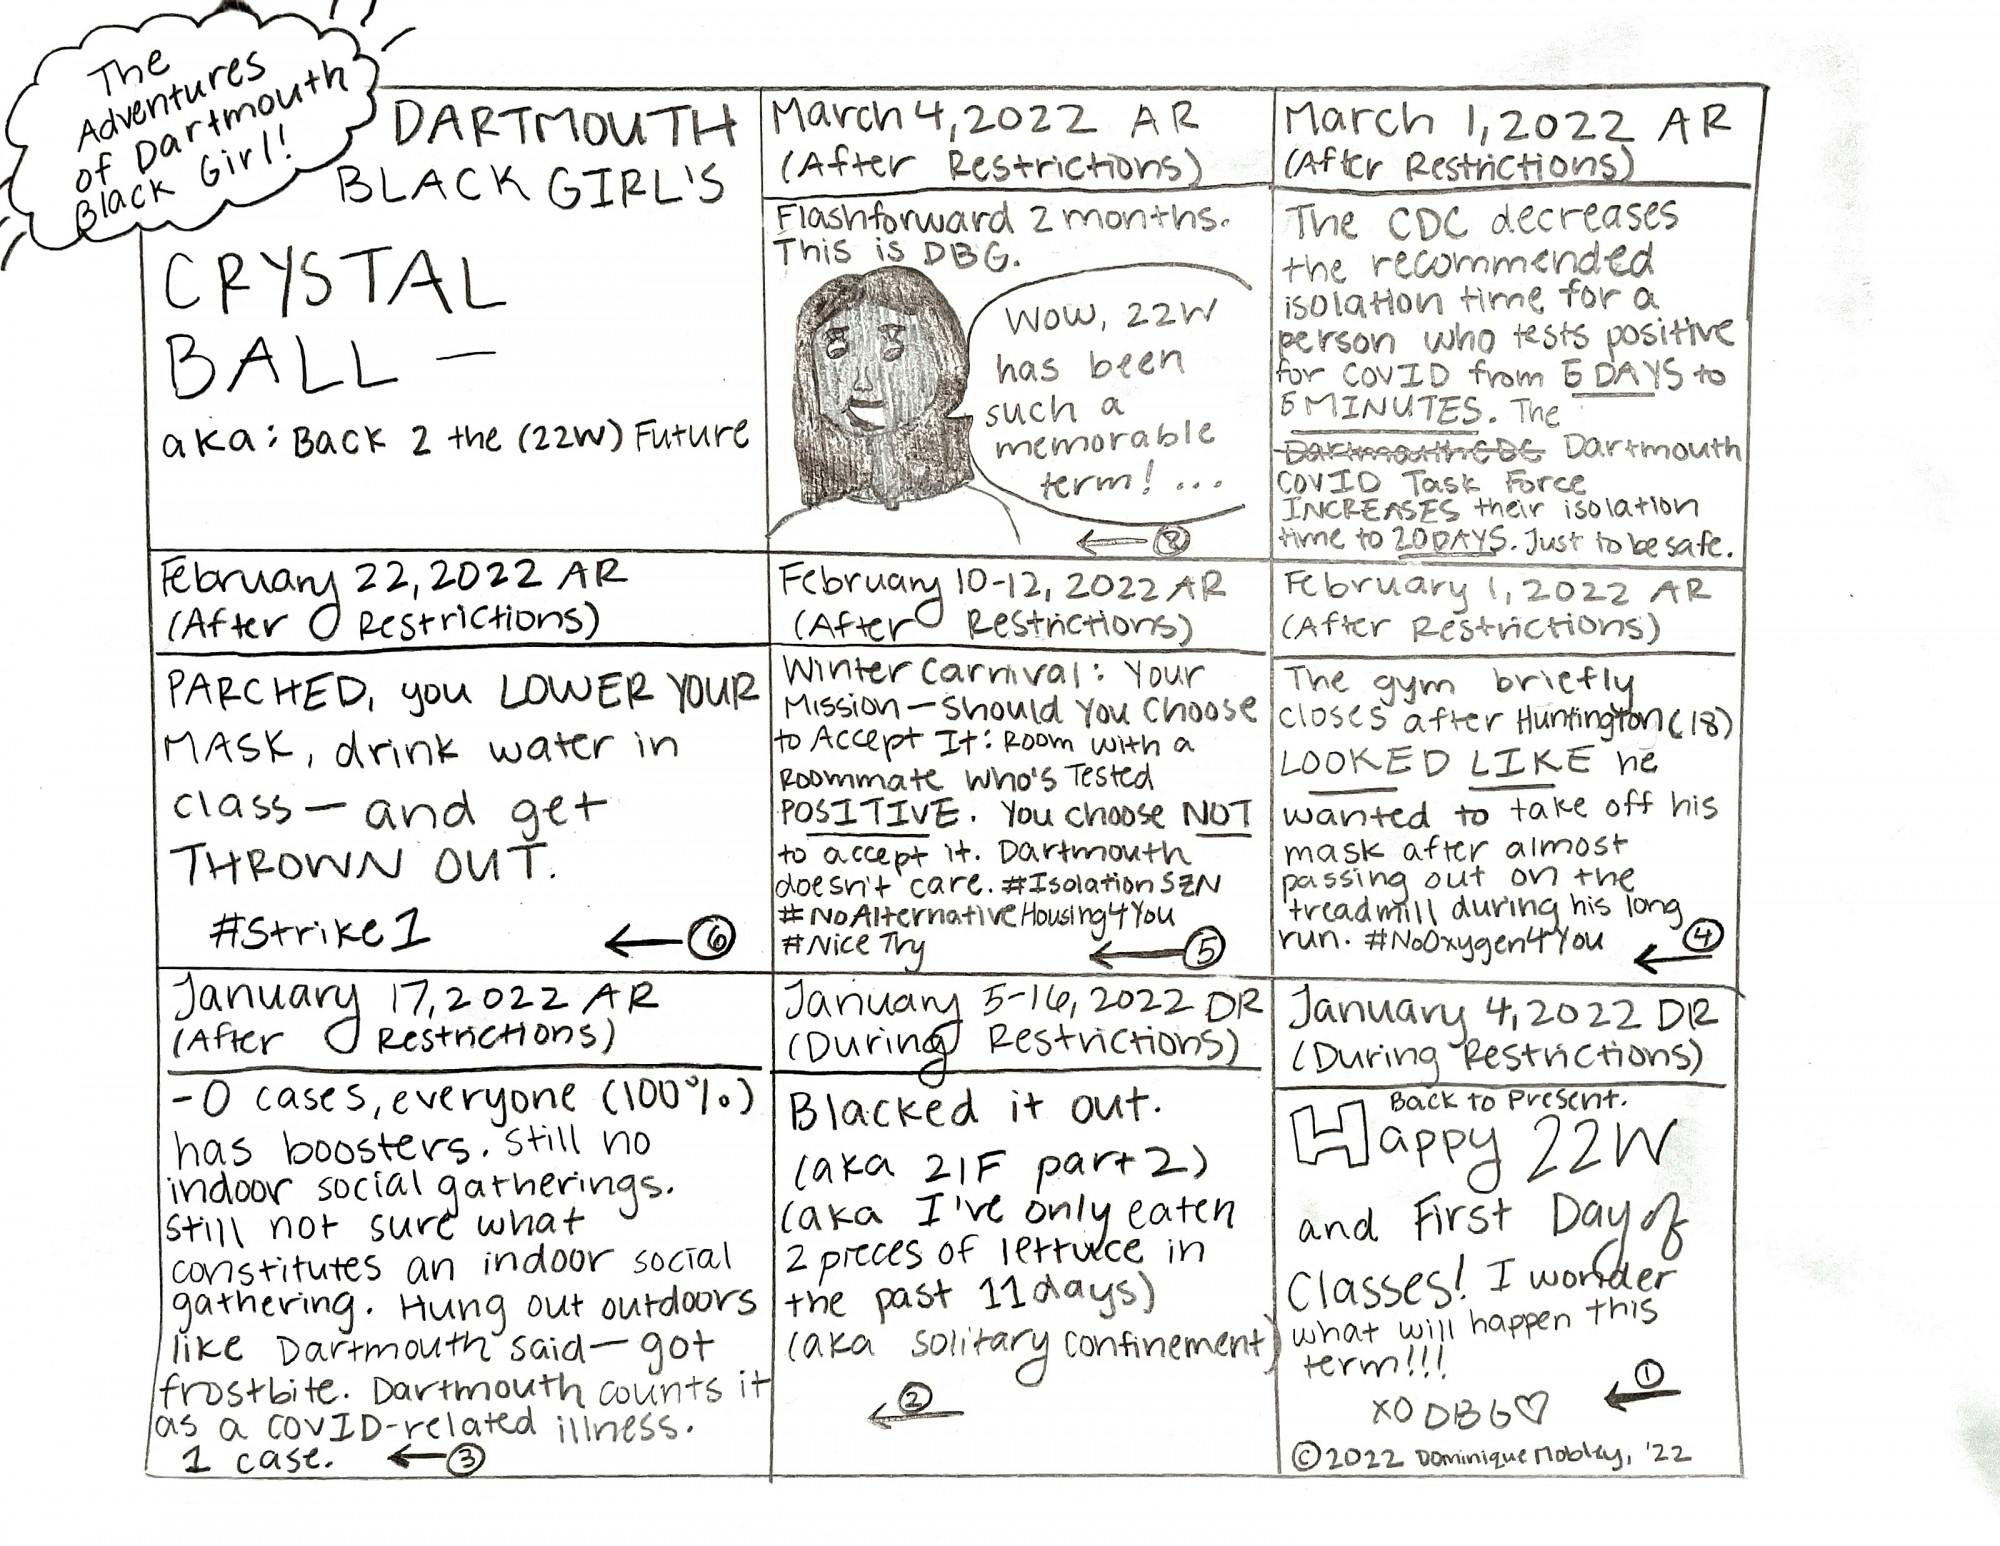 The
Adventures
of Dartmouth
Black Girl!
DARTMOUTH
BLACK GIRL'S
CRYSTAL
BALL —
aka: Back 2 the (22W) Future
March 4, 2022 AR
(After Restrictions)
Flashforward 2 months.
This is DBG.
Wow, 22W
has been
such a
memorable
term! ...
← 8
March 1, 2022 AR
(After Restrictions)
The CDC decreases
the recommended
isolation time for a
person who tests positive
for COVID from 5 DAYS to
5 MINUTES. The
Dartmouth CDC Dartmouth
COVID Task Force
INCREASES their isolation
time to 20 DAYS. Just to be safe.
February 22, 2022 AR
(After Restrictions)
PARCHED, you LOWER YOUR
MASK, drink water in
class — and get
THROWN OUT.
#Strike1
← 6
February 10-12, 2022 AR
(After Restrictions)
Winter Carnival: Your
Mission — Should You Choose
to Accept It: Room with a
Roommate Who's Tested
POSITIVE. You choose NOT
to accept it. Dartmouth
doesn't care. #IsolationSZN
#NoAlternativeHousing4You
#Nice Try
← 5
February 1, 2022 AR
(After Restrictions)
The gym briefly
closes after Huntington (18)
LOOKED LIKE he
wanted to take off his
mask after almost
passing out on the
treadmill during his long
run. #NoOxygen4You
← 4
January 17, 2022 AR
(After Restrictions)
-0 cases, everyone (100%)
has boosters. Still no
indoor social gatherings.
Still not sure what
constitutes an indoor social
gathering. Hung out outdoors
like Dartmouth said — got
frostbite. Dartmouth counts it
as a COVID-related illness.
1 case.
← 3
January 5-16, 2022 DR
(During Restrictions)
Blacked it out.
(aka 21F part 2)
(aka I've only eaten
2 pieces of lettuce in
the past 11 days)
(aka solitary confinement)
← 2
January 4, 2022 DR
(During Restrictions)
Back to Present.
Happy 22W
and First Day of
Classes! I wonder
what will happen this
term!!!
← 1
XO DBG♡
©2022 Dominique Mobley, '22